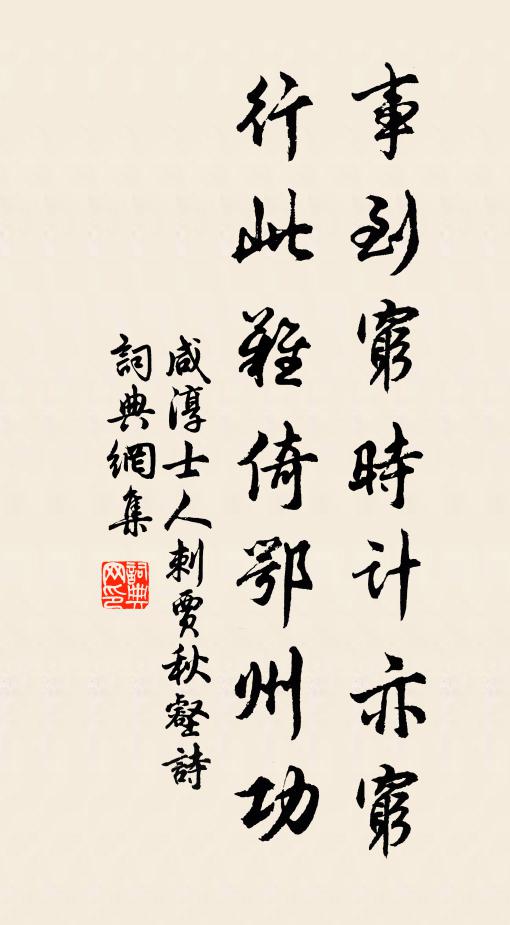 事到窮時計亦窮
行此難倚鄂州功
咸淳士人刺賈秋壑詩
詞典網集
詞典网印